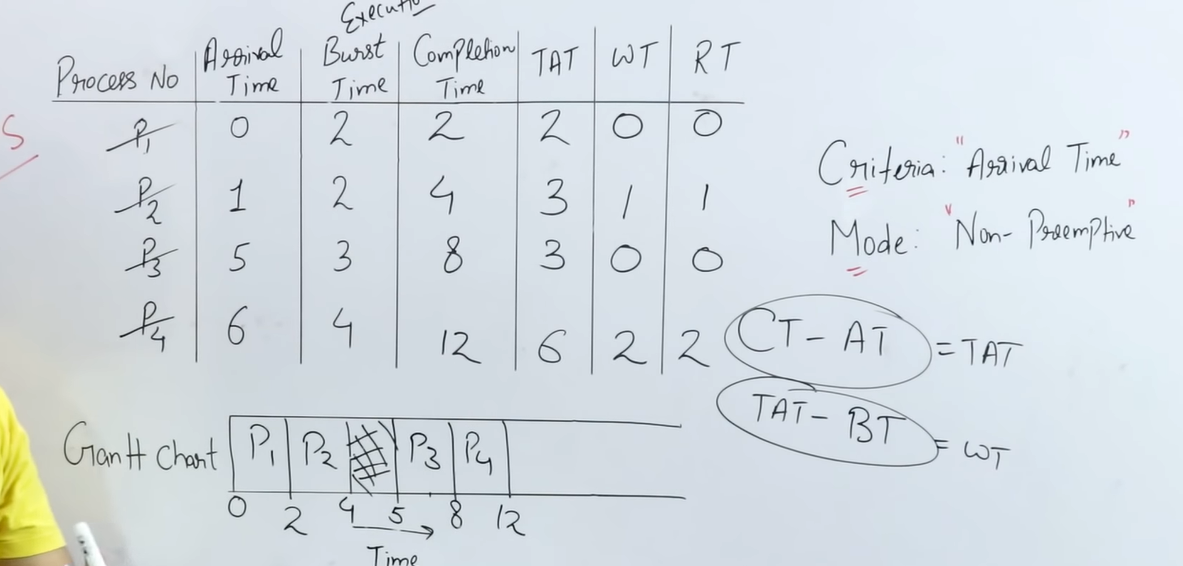 Executio
Process No Arrival Time Burst Time Completion Time TAT WT RT
S
P1 0 2 2 2 0 0
P2 1 2 4 3 1 1
P3 5 3 8 3 0 0
P4 6 4 12 6 2 2
Criteria: "Arrival Time"
Mode: "Non-Preemptive"
CT - AT = TAT
TAT - BT = WT
Gantt Chart P1 P2 P3 P4
0 2 4 5 8 12
Time